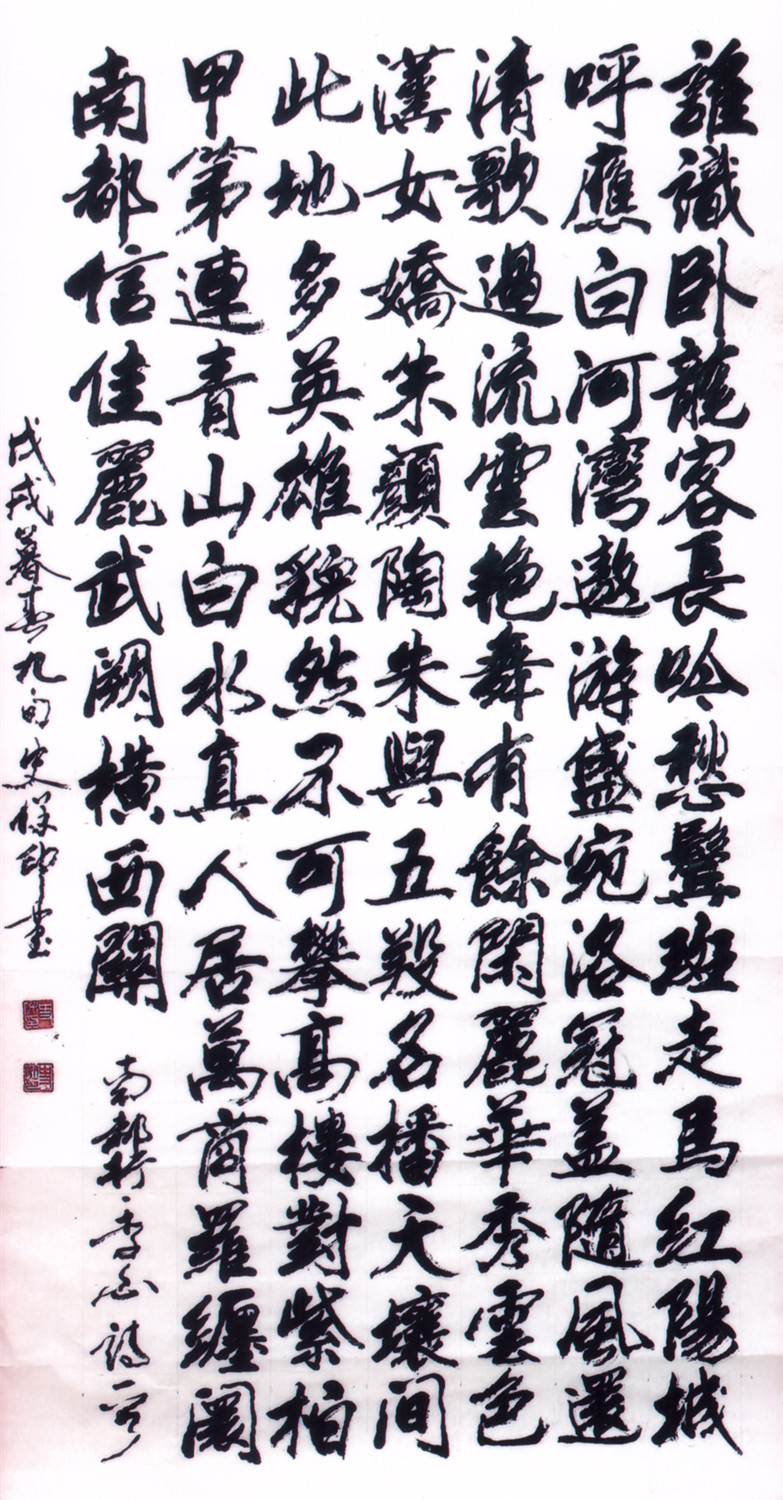 誰識卧龍客長吟愁鬢斑走馬紅陽城
呼應白河灣遨游盛宛洛冠盖隨風還
清歌遏流雲艳舞有餘閑麗華秀雲色
漢女嬌朱顏陶朱與五羖名播天壤間
此地多英雄貌然不可攀高樓對紫柏
甲第連青山白水真人居萬商羅纏闤
南都信佳麗武闕橫西關 南都行·李白詩一首
戊戌暮春九旬史保印書